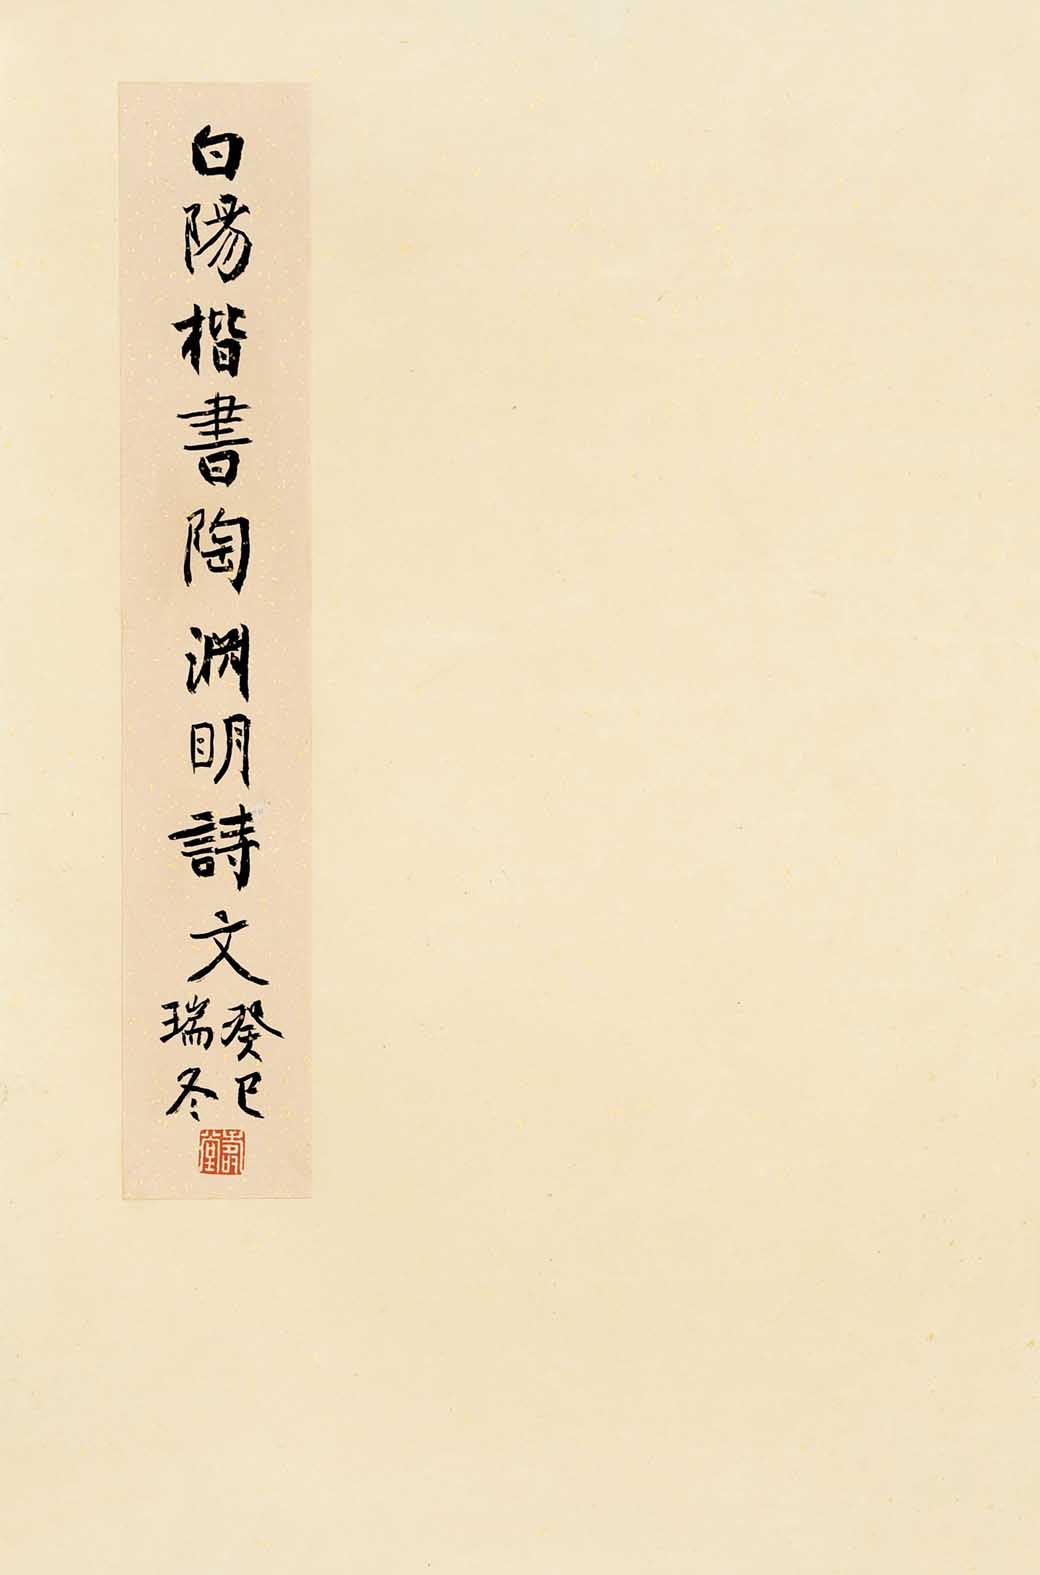 白陽楷書陶渊明詩文
癸巳
瑞冬
壽堂